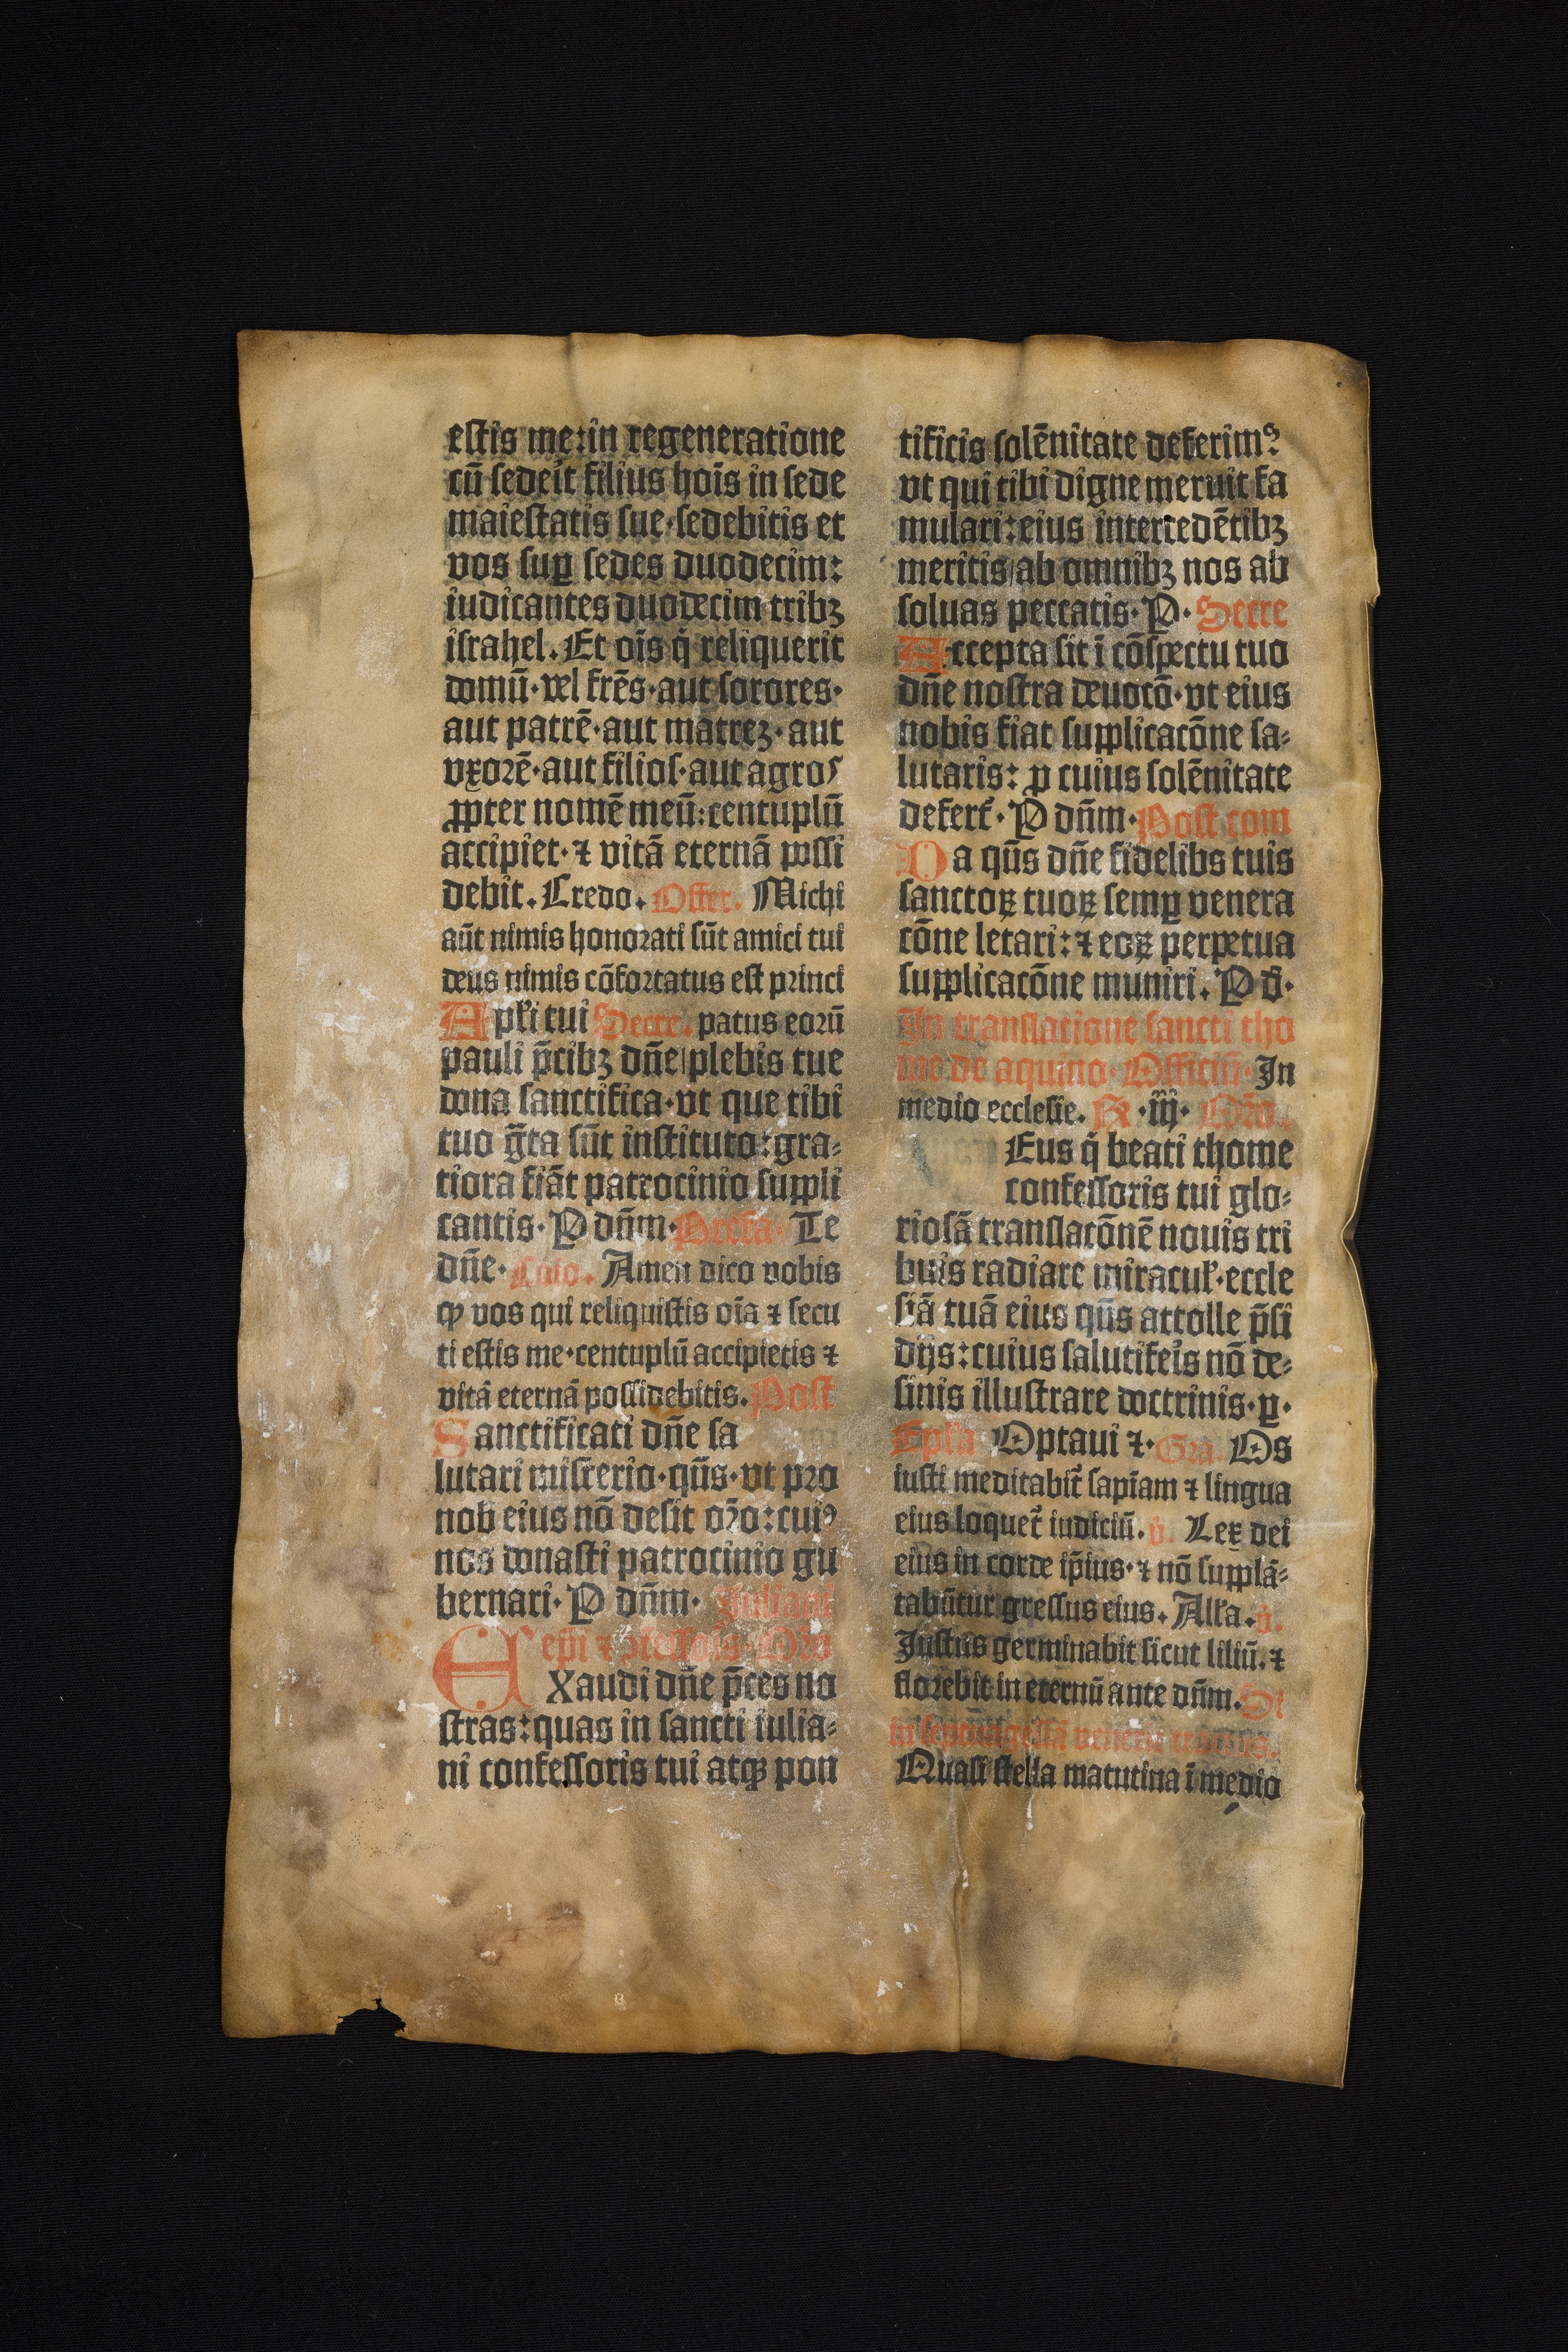 estis me:in regeneratione
cū sedeīt filius hoīs in sede
maiestatis sue·sedebitis et
vos suꝑ sedes duodecim:
iudicantes duodecim tribꝫ
israhel. Et oīs q̄ reliquerit
domū·vel frēs·aut sorores·
aut patrē·aut matreꝫ·aut
vxorē·aut filios·aut agros
ꝓpter nomē meū:centuplū
accipiet·⁊ vitā eternā possi
debit. Credo. Offer. Michi
aūt nimis honorati sūt amici tui
deus nimis cōfortatus est princi
Apl'i tui Secre. patus eorū
pauli p̄cibꝫ dn̄e/plebis tue
dona sanctifica·vt que tibi
tuo ḡta sūt instituto:gra⸗
tiora fiāt patrocinio suppli
cantis·P dn̄m·Prefa· Te
dn̄e· Cōio. Amen dico vobis
ꝙ vos qui reliquistis oīa ⁊ secu
ti estis me·centuplū accipietis ⁊
vitā eternā possidebitis. Post
Sanctificati dn̄e sa
lutari misterio·qūs·vt pro
nob eius nō desit oro:cuiꝰ
nos donasti patrocinio gu
bernari·P dn̄m· Juliani
epi ⁊ ꝯfessoris·Oro
EXaudi dn̄e p̄ces no
stras:quas in sancti iulia⸗
ni confessoris tui atqꝫ pon
tificis solēnitate deferimꝰ
vt qui tibi digne meruit fa
mulari:eius intercedētibꝫ
meritis/ab omnibꝫ nos ab
soluas peccatis·P· Secre
Accepta sit ī cōspectu tuo
dn̄e nostra deuotō·vt eius
nobis fiat supplicatōne sa⸗
lutaris: ꝑ cuius solēnitate
defert̄·P dn̄m·Post com
Da qūs dn̄e fidelibs tuis
sanctoꝝ tuoꝝ semꝑ venera
tōne letari:⁊ eoꝝ perpetua
supplicatōne muniri. P d̄·
In translatione sancti tho
me de aquino Officiū·In
medio ecclesie. fx ·iij· Oro.
Eus q̄ beati thome
confessoris tui glo⸗
riosā translatōnē nouis tri
buis radiare miracul'·eccle
siā tuā eius qūs attolle p̄si
dijs:cuius salutifeīs nō de⸗
sinis illustrare doctrinis·ꝑ·
Epl'a Optaui ⁊·Gra. Os
iusti meditabit̄ sapiam ⁊ lingua
eius loquet̄ iudiciū. v. Lex dei
eius in corde ip̄ius·⁊ nō supplā⸗
tabūtur gressus eius. All'a. v.
Justus germinabit sicut liliū. ⁊
florebit in eternū ante dn̄m. Si
in septuagesīa
Quasi stella matutina ī medio